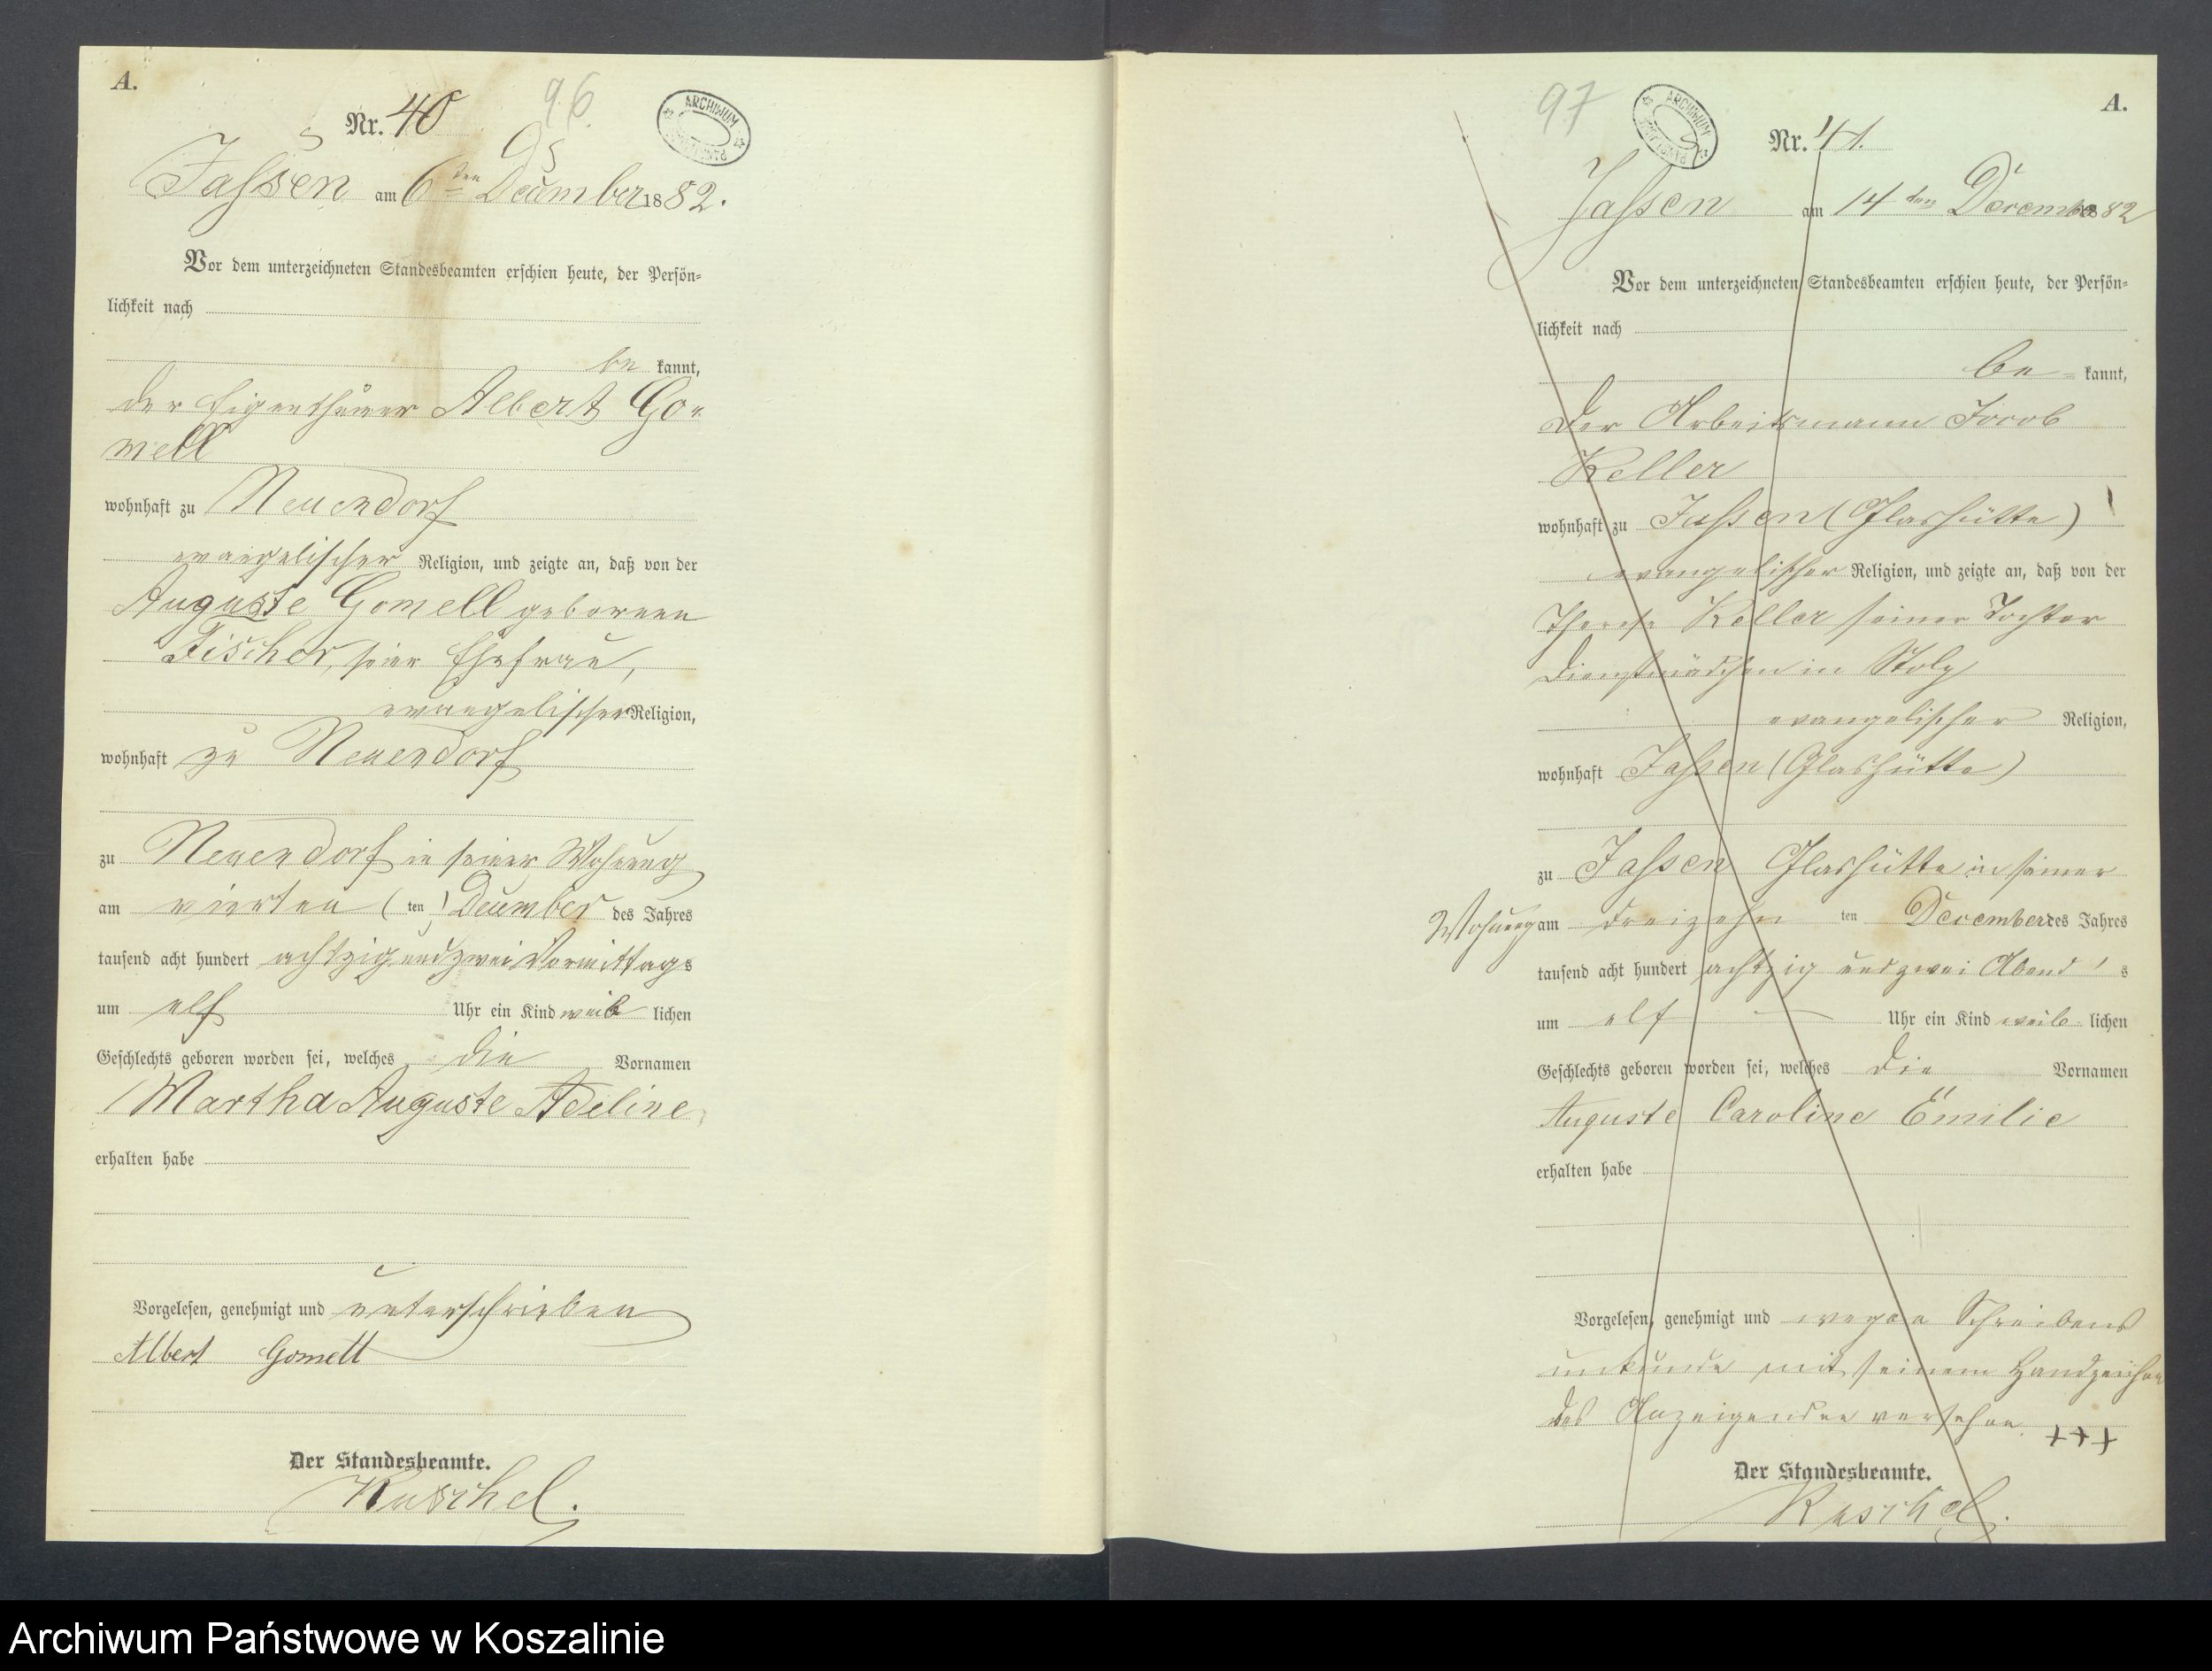 A.
Nr. 40
96
95
ARCHIWUM
Jassen am 6ten December 1882.
Vor dem unterzeichneten Standesbeamten erschien heute, der Persön-
lichkeit nach
be kannt,
der Eigenthümer Albert Go-
mell
wohnhaft zu Neuendorf
evangelischer Religion, und zeigte an, daß von der
Auguste Gomell geborenen
Fischer, seiner Ehefrau,
evangelischer Religion,
wohnhaft zu Neuendorf
zu Neuendorf in seiner Wohnung
am vierten (ten) December des Jahres
tausend acht hundert achtzig und zwei Vormittags
um elf Uhr ein Kind weib lichen
Geschlechts geboren worden sei, welches die Vornamen
Martha Auguste Adeline
erhalten habe
Vorgelesen, genehmigt und unterschrieben
Albert Gomell
Der Standesbeamte.
Kuschel.
97
ARCHIWUM
A.
Nr. 41.
Jassen am 14ten December 1882
Vor dem unterzeichneten Standesbeamten erschien heute, der Persön-
lichkeit nach
be kannt,
der Arbeitsmann Jacob
Keller
wohnhaft zu Jassen (Glashütte)
evangelischer Religion, und zeigte an, daß von der
Therese Keller seiner Tochter
Dienstmädchen in Stolp
evangelischer Religion,
wohnhaft Jassen (Glashütte)
zu Jassen Glashütte in seiner
Wohnung am dreizehn ten December des Jahres
tausend acht hundert achtzig und zwei Abend's
um elf Uhr ein Kind weib lichen
Geschlechts geboren worden sei, welches die Vornamen
Auguste Caroline Emilie
erhalten habe
Vorgelesen, genehmigt und wegen Schreibens
unkunde mit seinem Handzeichen
des Anzeigenden versehen. +++
Der Standesbeamte.
Kuschel.
Archiwum Państwowe w Koszalinie